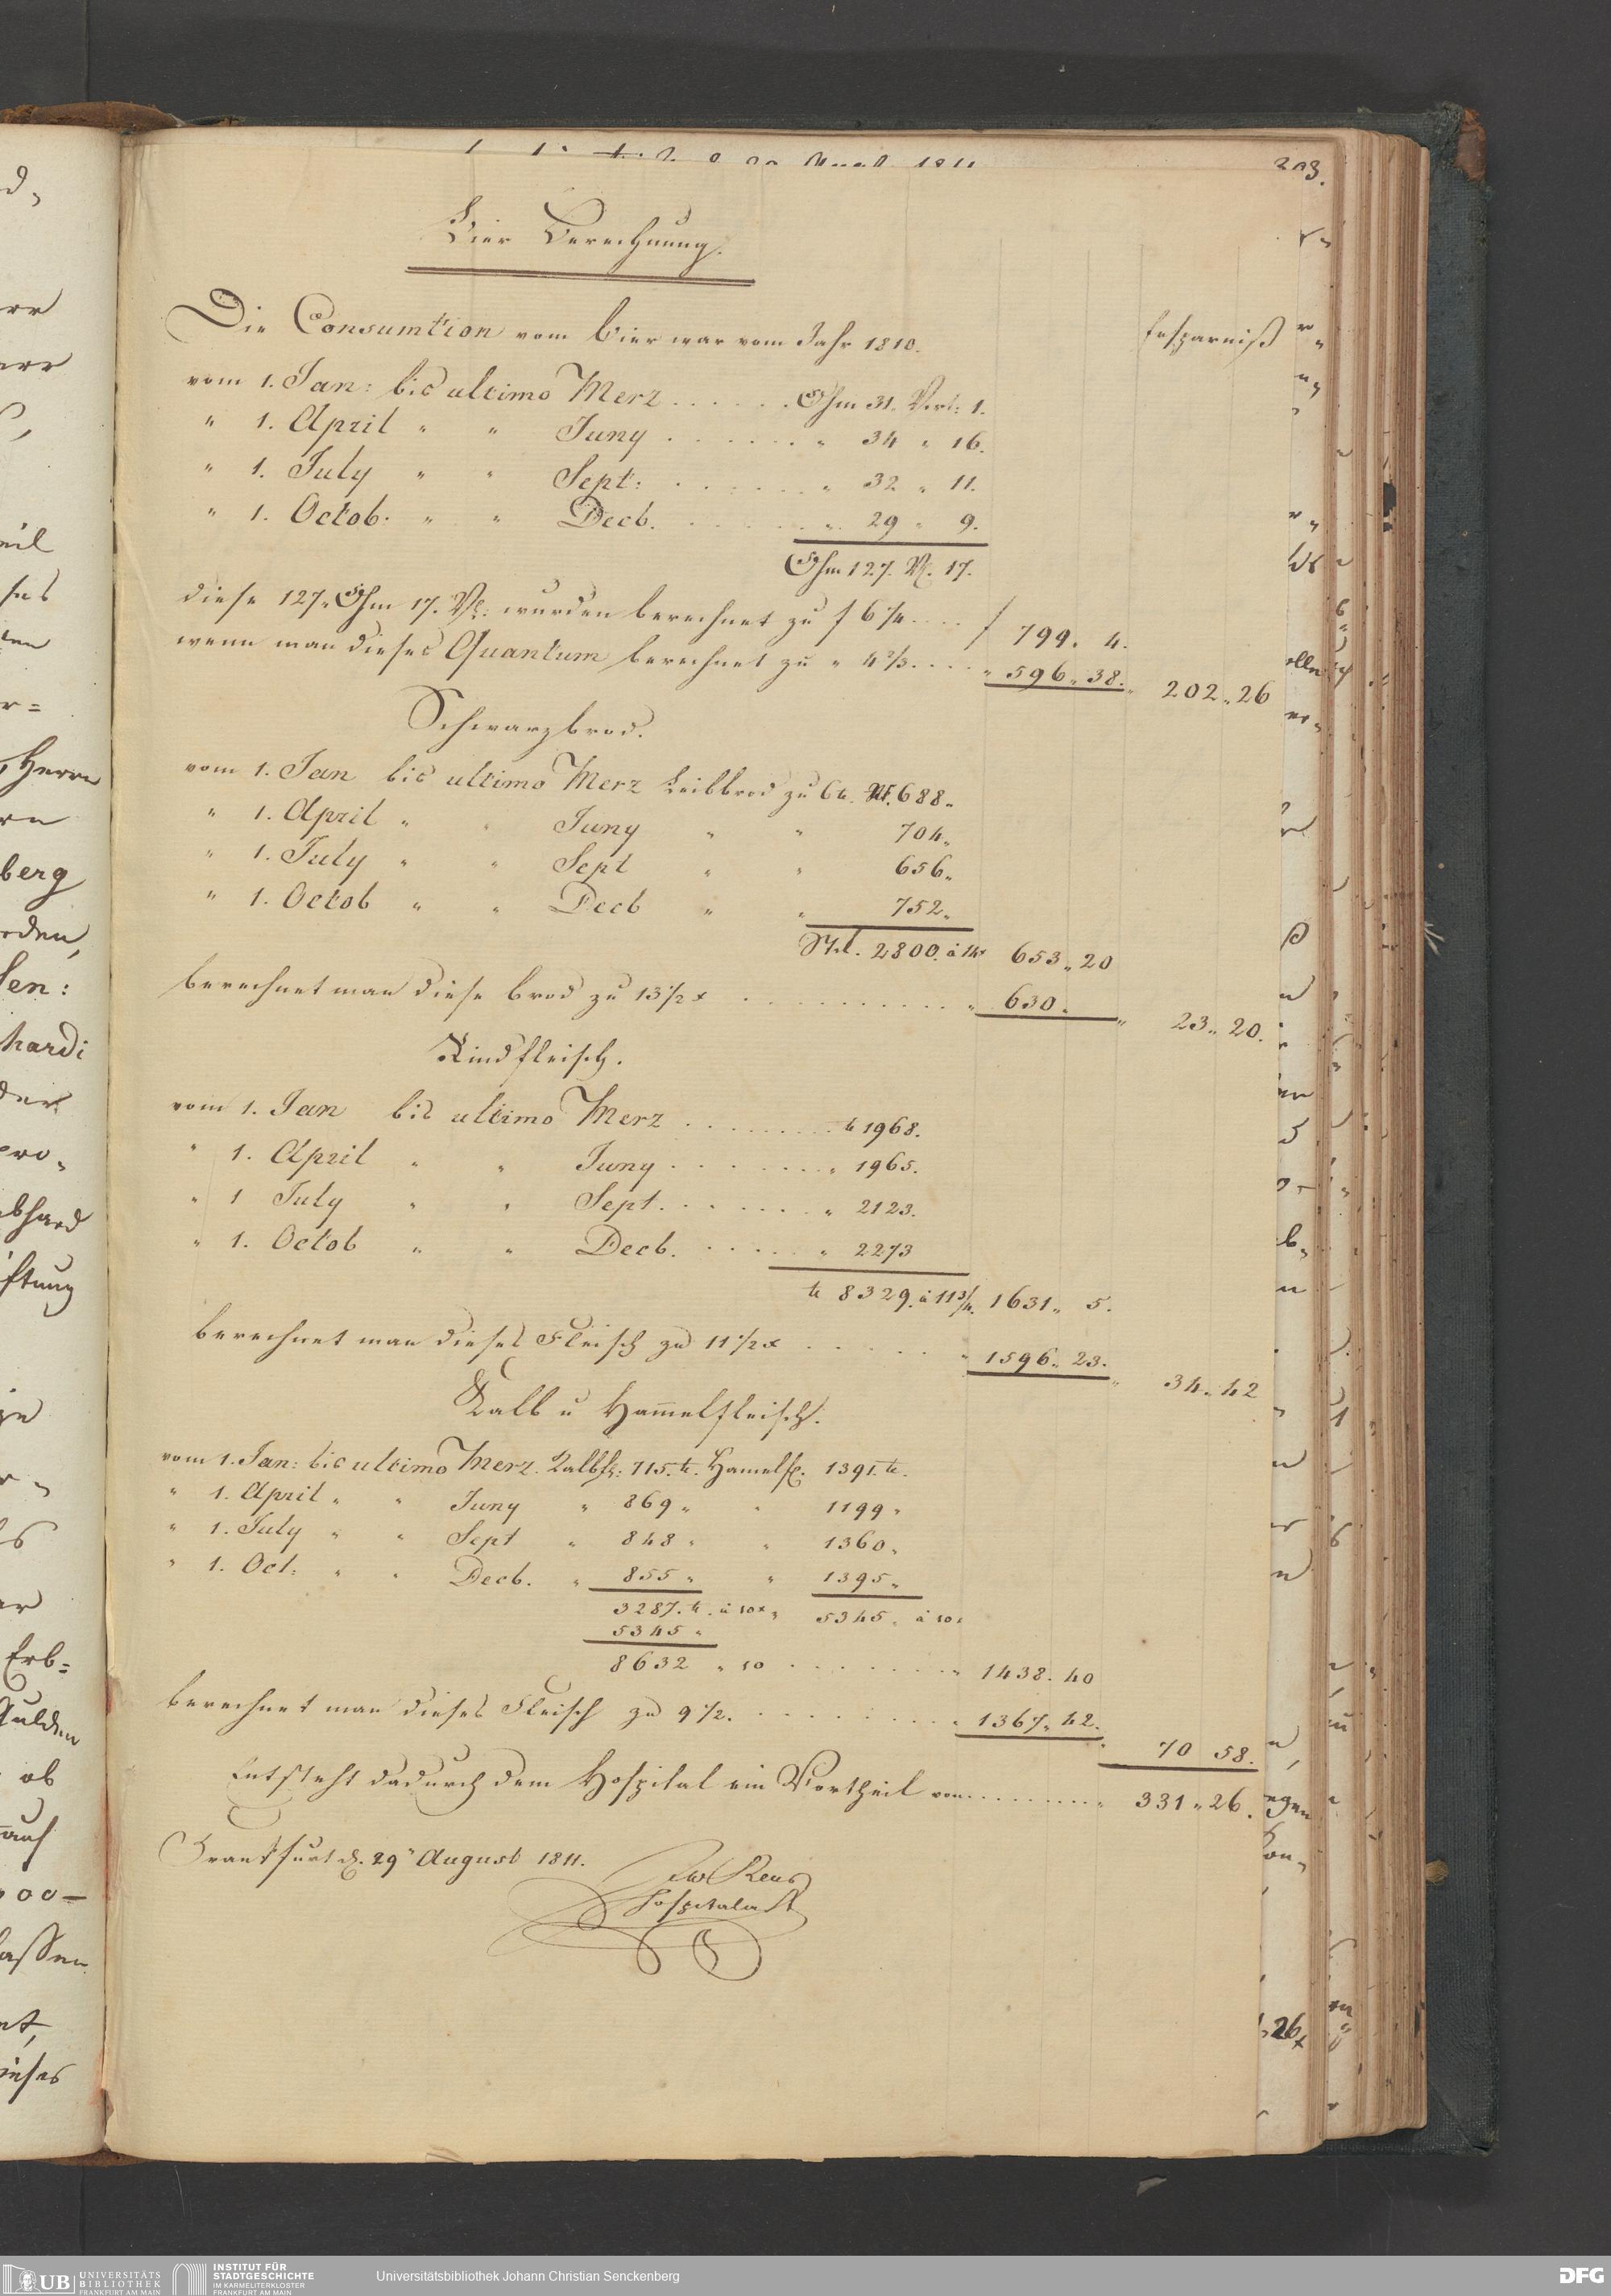 203.
Bier Berechnung.
Die Consumtion vom Bier war vom Jahr 1810. Ersparniß
vom 1. Jan: bis ultimo Merz . . . . . . Ohm 31. Vrtl: 1.
" 1. April " " Juny . . . . . . . " 34 " 16.
" 1. July " " Sept: . . . . . . . " 32 " 11.
" 1. Octob. " " Decb. . . . . . . . " 29 " 9.
Ohm 127. V. 17.
diese 127. Ohm 17. V. wurden berechnet zu f 6 1/4 . . . . f 799. 4.
wenn man dieses Quantum berechnet zu " 4 2/3 . . . . " 596. 38. " 202. 26
Schwarzbrod.
vom 1. Jan bis ultimo Merz Leibbrod zu 6 lb. 688.
" 1. April " " Juny " " 704.
" 1. July " " Sept " " 656.
" 1. Octob " " Decb " " 752.
Stk. 2800. à 14x 653. 20
berechnet man diese Brod zu 13 1/2 x . . . . . . . . . . . " 630. " 23. 20.
Rindfleisch.
vom 1. Jan bis ultimo Merz . . . . . . . . lb 1968.
" 1. April " " Juny . . . . . . . " 1965.
" 1 July " " Sept. . . . . . . . " 2123.
" 1. Octob " " Decb. . . . . . " 2273
lb 8329. à 11 3/4. 1631. 5.
berechnet man dieses Fleisch zu 11 1/2 x . . . . . . " 1596. 23. " 34. 42
Kalb u Hammelfleisch.
vom 1. Jan: bis ultimo Merz. Kalbfl: 715. lb. Hamelfl. 1391. lb.
" 1. April " " Juny " 869 " " 1199 "
" 1. July " " Sept " 848 " " 1360 "
" 1. Oct: " " Decb. " 855 " " 1395 "
3287. lb. à 10x " 5345. à 10x
5345 "
8632 " 10 . . . . . . . . " 1438. 40
berechnet man dieses Fleisch zu 9 1/2. . . . . . . . . . " 1367. 42. " 70 58.
Entsteht dadurch dem Hospital ein Vortheil von . . . . . . . . . " 331. 26.
Frankfurt d. 29 August 1811.
Reus
UB UNIVERSITÄTS BIBLIOTHEK FRANKFURT AM MAIN
INSTITUT FÜR STADTGESCHICHTE IM KARMELITERKLOSTER FRANKFURT AM MAIN
Universitätsbibliothek Johann Christian Senckenberg
DFG